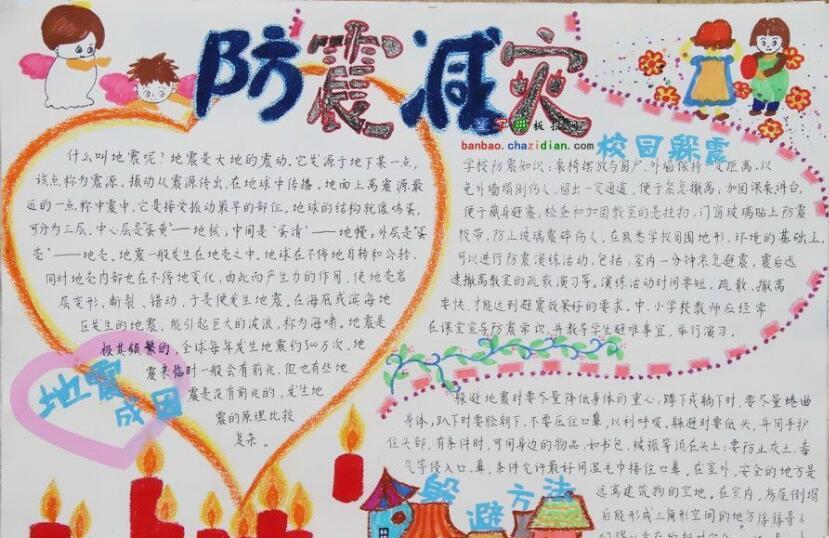 防震减灾
banbao.chazidian.com
什么叫地震呢?地震是大地的震动。它发源于地下某一点,
该点称为震源。振动从震源传出,在地球中传播。地面上离震源最
近的一点称中震中,它是接受振动最早的部位。地球的结构就像鸡蛋,
可分为三层。中心层是"蛋黄"——地核,中间是"蛋清"——地幔,外层是"蛋
壳"——地壳。地震一般发生在地壳之中。地球在不停地自转和公转,
同时地壳内部也在不停地变化,由此而产生力的作用,使地壳岩
层变形、断裂、错动,于是便发生地震。在海底或滨海地
区发生的地震,能引起巨大的波浪,称为海啸。地震是
极其频繁的,全球每年发生地震约500万次,地
震来临时一般会有前兆,但也有些地
震是没有前兆的,发生地
震的原理比较
复杂。
地震
成因
校园躲震
学校防震知识:桌椅摆放与窗户、外墙保持一定距离,以
免外墙塌倒伤人,留出一定通道,便于紧急撤离,加固课桌讲台,
便于藏身避震,检查和加固教室的悬挂物,门窗玻璃贴上防震
胶带,防止玻璃震碎伤人,在熟悉学校周围地形、环境的基础上,
可以进行防震演练活动,包括:室内一分钟紧急避震,震后迅
速撤离教室的疏散演习等。演练活动时间要短,疏散、撤离
要快,才能达到避震效果好的要求。中、小学校教师应经常
在课堂宣导防震常识,并教导学生避难事宜,举行演习。
躲避地震时要尽量降低身体的重心,蹲下或躺下时,要尽量蜷曲
身体,趴下时要脸朝下,不要压住口鼻,以利呼吸。躲避时要低头,并用手护
住头部,有条件时,可用身边的物品,如书包、被褥等顶在头上;要防止灰土、毒
气等侵入口、鼻,条件允许最好用湿毛巾捂住口鼻。在室外,安全的地方是
远离建筑物的空地。在室内,房屋倒塌
后能形成三角形空间的地方
躲避方法